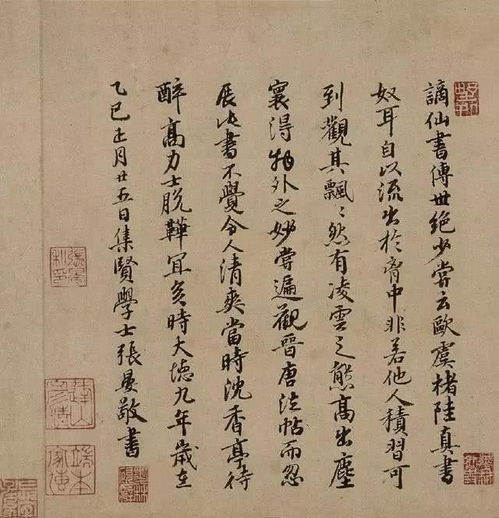 謫仙書傳世絕少嘗云歐虞褚陸真書
奴耳自以流出於胷中非若他人積習可
到觀其飄〻然有凌雲之態高出塵
寰得物外之妙嘗遍觀晉唐法帖而忽
展此書不覺令人清爽當時沈香亭待
醉高力士脫鞾宜矣時大德九年歲在
乙巳正月廿五日集賢學士張晏敬書
端本家傳